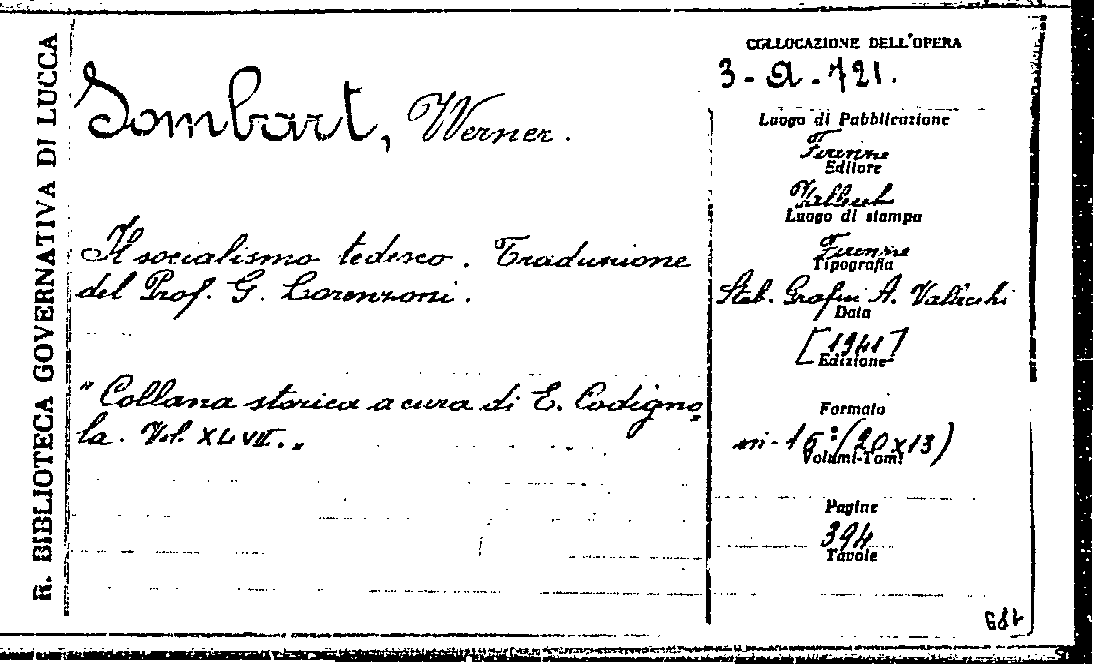 R. BIBLIOTECA GOVERNATIVA DI LUCCA
Sombart, Werner.
Il socialismo tedesco. Traduzione
del Prof. G. Lorenzoni.
"Collana storica a cura di E. Codigno=
la. Vol. XLVII.„
COLLOCAZIONE DELL'OPERA
3-a-721.
Luogo di Pubblicazione
Firenze
Editore
Luogo di stampa
Firenze
Tipografia
Stab. Grafici A. Vallecchi
Data
[1941]
Edizione
Formato
in-16°(20x13)
Volumi-Tomi
Pagine
394
Tavole